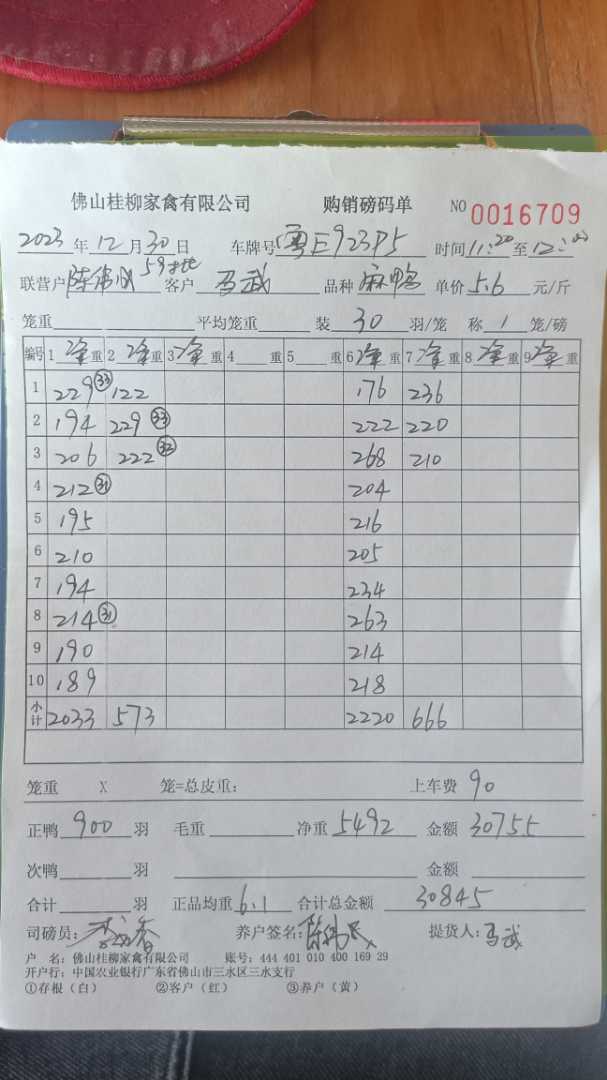 佛山桂柳家禽有限公司 购销磅码单 NO 0016709
2023年12月30日 车牌号 粤E923P5 时间11:20至12:00
联营户 59批 客户 马武 品种 麻鸭 单价5.6元/斤
笼重 平均笼重 装30羽/笼 称1笼/磅
编号 1净重 2净重 3净重 4 重 5 重 6净重 7净重 8净重 9净重
1 229㉝ 122 176 236
2 194 229㉝ 222 220
3 206 222㉜ 268 210
4 212㉛ 204
5 195 216
6 210 205
7 194 234
8 214㉛ 263
9 190 214
10 189 218
小计 2033 573 2220 666
笼重 X 笼=总皮重: 上车费 90
正鸭900羽 毛重 净重5492 金额30755
次鸭 羽 金额
合计 羽 正品均重6.1 合计总金额 30845
司磅员: 养户签名: 提货人:马武
户 名: 佛山桂柳家禽有限公司 账号: 444 401 010 400 169 39
开户行: 中国农业银行广东省佛山市三水区三水支行
①存根(白) ②客户(红) ③养户(黄)